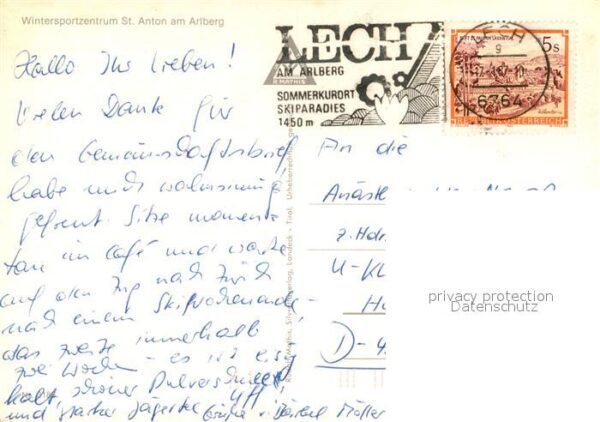 Wintersportzentrum St. Anton am Arlberg
LECH
AM ARLBERG
SOMMERKURORT
SKIPARADIES
1450 m
R. MATHIS
LECH
6764
5 S
REPUBLIK ÖSTERREICH
Hallo Ihr Lieben!
Vielen Dank für
den Gemeinschaftsbrief,
habe mich wahnsinnig
gefreut. Sitze momen-
tan im Café und warte
auf den Zug nach Zürich
nach einem Skiwochenende -
das zweite innerhalb
zwei Wochen - es ist eisig
kalt, schöner Pulverschnee
und starker Jägertee Uff!
Grüße v. Bärbel
An die
z. Hdn.
U-Kl
D-4
privacy protection
Datenschutz